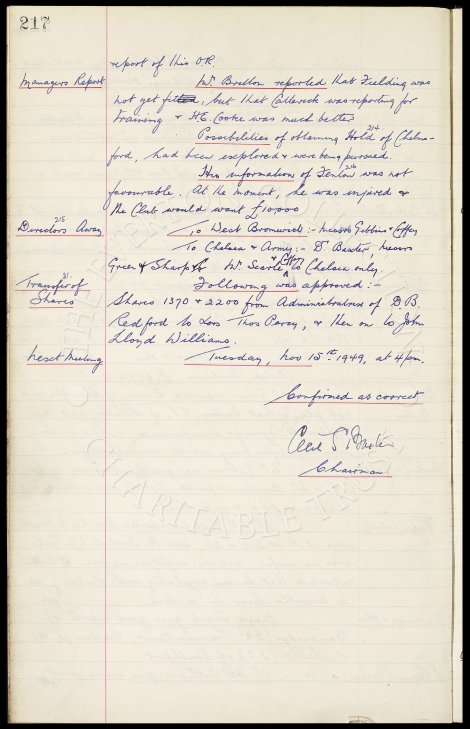 217
report of this O.R.
Managers Report
Mr Britton reported that Fielding was
not yet fitted, but that Catterick was reporting for
training & H.E. Cooke was much better
Possibilities of obtaining Hold 214 of Chelms-
ford, had been explored & were being pursued.
His information of Fenton 216 was not
favourable. At the moment, he was injured &
the Club would want £10000
Directors Away 215
To West Bromwich:- Messrs Gibbins & Coffey
To Chelsea & Army:- Dr Baxter, Messrs
Green & Sharp & Mr Searle & Coffey to Chelsea only
Transfer of 31
Shares
Following was approved:-
Shares 1370 & 2200 from Administratrix of D.B.
Redford to Thos Percy, & then on to John
Lloyd Williams.
Next Meeting
Tuesday, Nov 15th 1949, at 4pm.
Confirmed as correct
Cecil S Baxter
Chairman
CHARITABLE TRUST